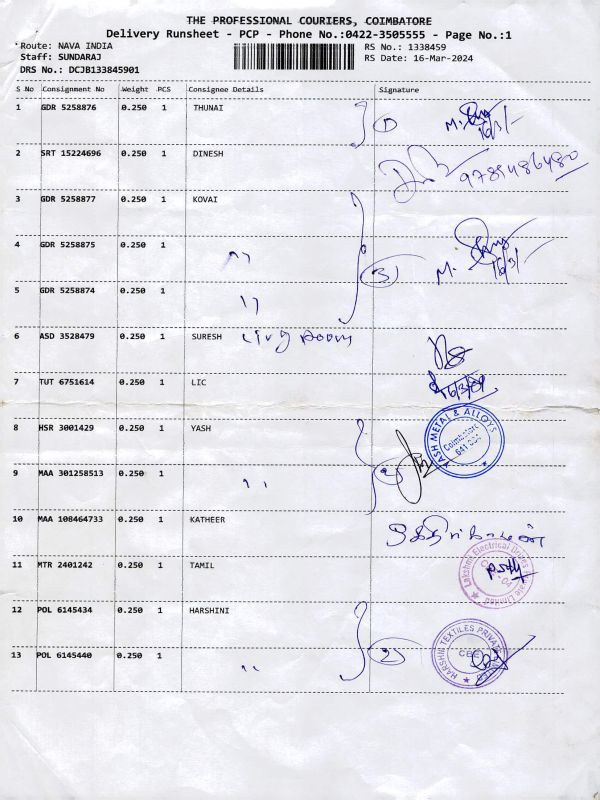 THE PROFESSIONAL COURIERS, COIMBATORE
Delivery Runsheet - PCP - Phone No.:0422-3505555 - Page No.:1
Route: NAVA INDIA
RS No.: 1338459
Staff: SUNDARAJ
RS Date: 16-Mar-2024
DRS No.: DCJB133845901
S No Consignment No Weight PCS Consignee Details Signature
1 GDR 5258876 0.250 1 THUNAI 1 M. 16/3/-
2 SRT 15224696 0.250 1 DINESH
3 GDR 5258877 0.250 1 KOVAI
4 GDR 5258875 0.250 1 " 3) M. 16/3/-
5 GDR 5258874 0.250 1 "
6 ASD 3528479 0.250 1 SURESH Living Room
7 TUT 6751614 0.250 1 LIC 16/3/
8 HSR 3001429 0.250 1 YASH
ASH METAL & ALLOYS
Coimbatore
9 MAA 301258513 0.250 1 "
10 MAA 108464733 0.250 1 KATHEER
11 MTR 2401242 0.250 1 TAMIL
Lakshmi Electrical Drives Private Limited
12 POL 6145434 0.250 1 HARSHINI
13 POL 6145440 0.250 1 " 2)
HARSHINI TEXTILES PRIVATE LIMITED
CBE